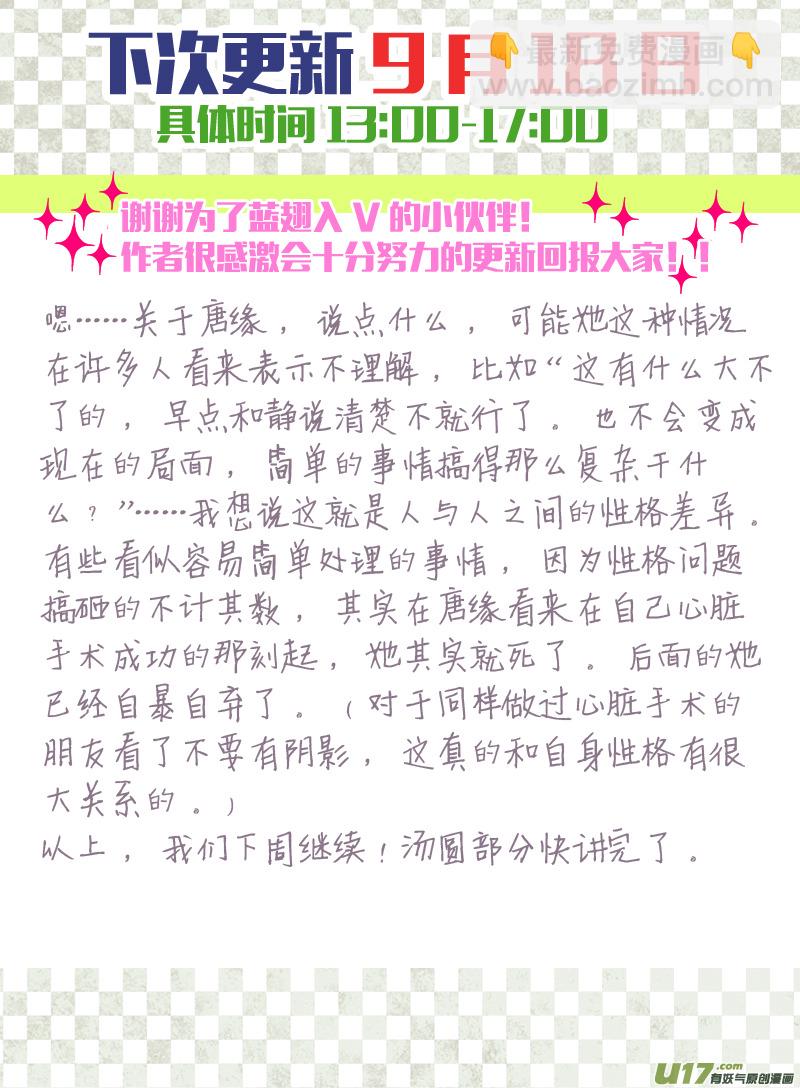 下次更新 9月18日
最新免费漫画
www.baozimh.com
具体时间 13:00-17:00
谢谢为了蓝翅入 V 的小伙伴！
作者很感激会十分努力的更新回报大家！！
嗯……关于唐缘，说点什么，可能她这种情况
在许多人看来表示不理解，比如“这有什么大不
了的，早点和静说清楚不就行了。也不会变成
现在的局面，简单的事情搞得那么复杂干什
么？”……我想说这就是人与人之间的性格差异。
有些看似容易简单处理的事情，因为性格问题
搞砸的不计其数，其实在唐缘看来在自己心脏
手术成功的那刻起，她其实就死了。后面的她
已经自暴自弃了。（对于同样做过心脏手术的
朋友看了不要有阴影，这真的和自身性格有很
大关系的。）
以上，我们下周继续！汤圆部分快讲完了。
U17.com
有妖气原创漫画